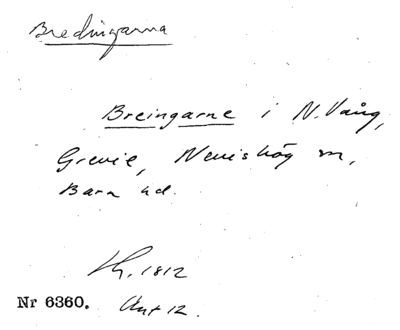 Bredingarna
Breingarne i N. Vång,
Grevie, Nevishög m,
Bara hd.
1812
Nr 6360. Akt 12.